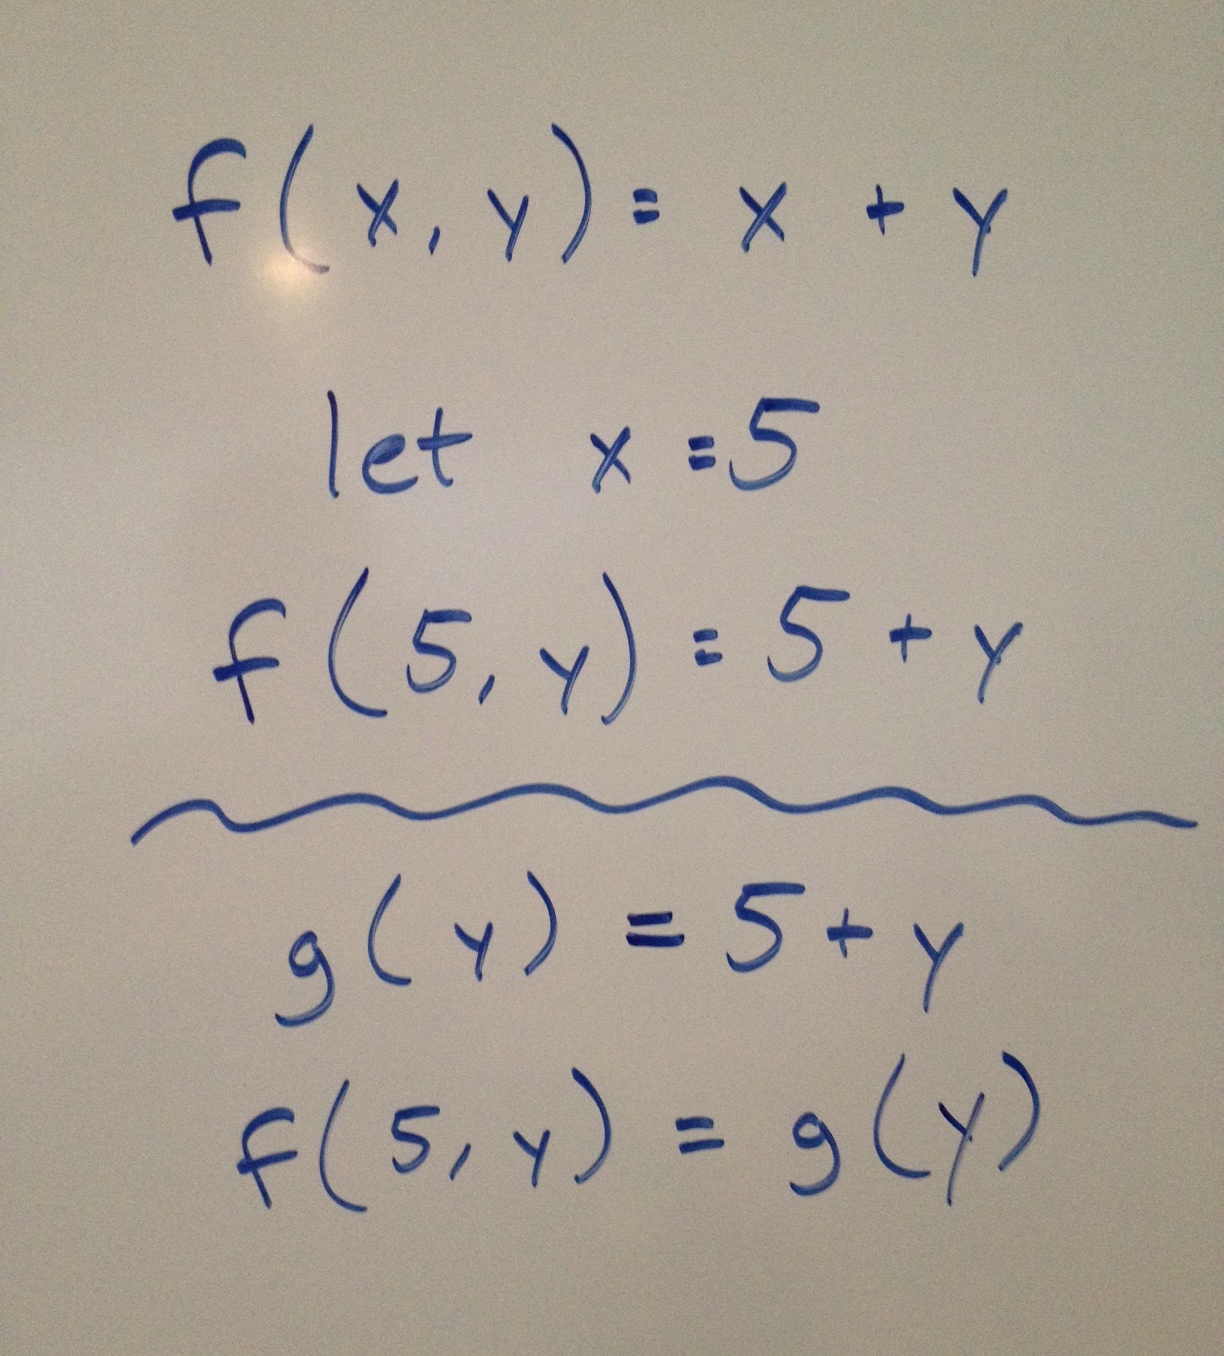 f(x, y) = x + y
let x = 5
f(5, y) = 5 + y
g(y) = 5 + y
f(5, y) = g(y)